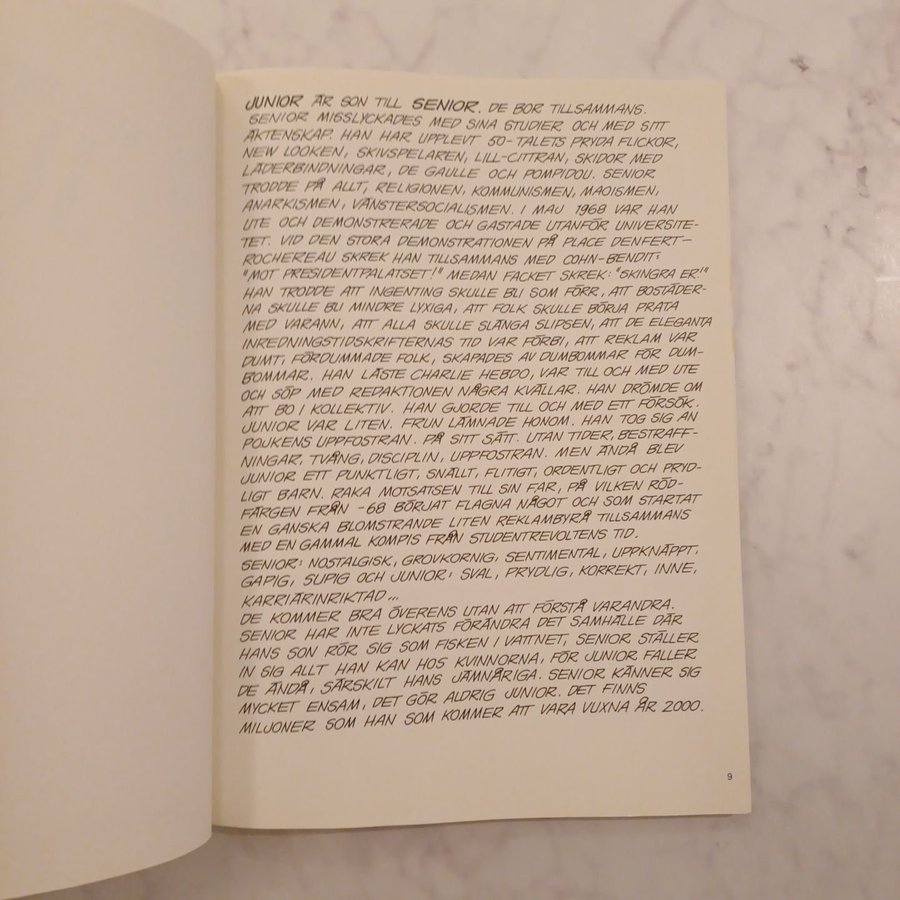 JUNIOR ÄR SON TILL SENIOR. DE BOR TILLSAMMANS.
SENIOR MISSLYCKADES MED SINA STUDIER OCH MED SITT
ÄKTENSKAP. HAN HAR UPPLEVT 50-TALETS PRYDA FLICKOR,
NEW LOOKEN, SKIVSPELAREN, LILL-CITTRAN, SKIDOR MED
LÄDERBINDNINGAR, DE GAULLE OCH POMPIDOU. SENIOR
TRODDE PÅ ALLT, RELIGIONEN, KOMMUNISMEN, MAOISMEN,
ANARKISMEN, VÄNSTERSOCIALISMEN. I MAJ 1968 VAR HAN
UTE OCH DEMONSTRERADE OCH GASTADE UTANFÖR UNIVERSITE-
TET. VID DEN STORA DEMONSTRATIONEN PÅ PLACE DENFERT-
ROCHEREAU SKREK HAN TILLSAMMANS MED COHN-BENDIT:
"MOT PRESIDENTPALATSET!" MEDAN FACKET SKREK: "SKINGRA ER!"
HAN TRODDE ATT INGENTING SKULLE BLI SOM FÖRR, ATT BOSTÄDER-
NA SKULLE BLI MINDRE LYXIGA, ATT FOLK SKULLE BÖRJA PRATA
MED VARANN, ATT ALLA SKULLE SLÄNGA SLIPSEN, ATT DE ELEGANTA
INREDNINGSTIDSKRIFTERNAS TID VAR FÖRBI, ATT REKLAM VAR
DUMT, FÖRDUMMADE FOLK, SKAPADES AV DUMBOMMAR FÖR DUM-
BOMMAR. HAN LÄSTE CHARLIE HEBDO, VAR TILL OCH MED UTE
OCH SÖP MED REDAKTIONEN NÅGRA KVÄLLAR. HAN DRÖMDE OM
ATT BO I KOLLEKTIV. HAN GJORDE TILL OCH MED ETT FÖRSÖK.
JUNIOR VAR LITEN. FRUN LÄMNADE HONOM. HAN TOG SIG AN
POJKENS UPPFOSTRAN. PÅ SITT SÄTT. UTAN TIDER, BESTRAFF-
NINGAR, TVÅNG, DISCIPLIN, UPPFOSTRAN. MEN ÄNDÅ BLEV
JUNIOR ETT PUNKTLIGT, SNÄLLT, FLITIGT, ORDENTLIGT OCH PRYD-
LIGT BARN. RAKA MOTSATSEN TILL SIN FAR, PÅ VILKEN RÖD-
FÄRGEN FRÅN -68 BÖRJAT FLAGNA NÅGOT OCH SOM STARTAT
EN GANSKA BLOMSTRANDE LITEN REKLAMBYRÅ TILLSAMMANS
MED EN GAMMAL KOMPIS FRÅN STUDENTREVOLTENS TID.
SENIOR: NOSTALGISK, GROVKORNIG, SENTIMENTAL, UPPKNÄPPT,
GAPIG, SUPIG OCH JUNIOR: SVAL, PRYDLIG, KORREKT, INNE,
KARRIÄRINRIKTAD...
DE KOMMER BRA ÖVERENS UTAN ATT FÖRSTÅ VARANDRA.
SENIOR HAR INTE LYCKATS FÖRÄNDRA DET SAMHÄLLE DÄR
HANS SON RÖR SIG SOM FISKEN I VATTNET, SENIOR STÄLLER
IN SIG ALLT HAN KAN HOS KVINNORNA, FÖR JUNIOR FALLER
DE ÄNDÅ, SÄRSKILT HANS JÄMNÅRIGA. SENIOR KÄNNER SIG
MYCKET ENSAM, DET GÖR ALDRIG JUNIOR. DET FINNS
MILJONER SOM HAN SOM KOMMER ATT VARA VUXNA ÅR 2000.
9